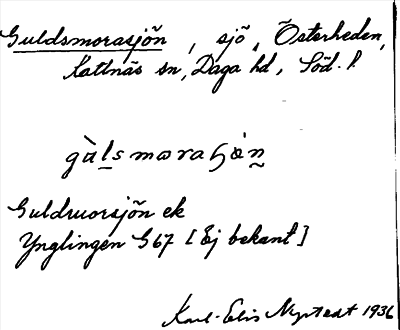 Guldsmorasjön, sjö, Österheden,
Kattnäs sn, Daga hd, Söd. l.
gu̇̀l̲smoraɧön
Guldruorsjön ek
Ynglingen G67 [Ej bekant]
Karl-Elis Nystedt 1936